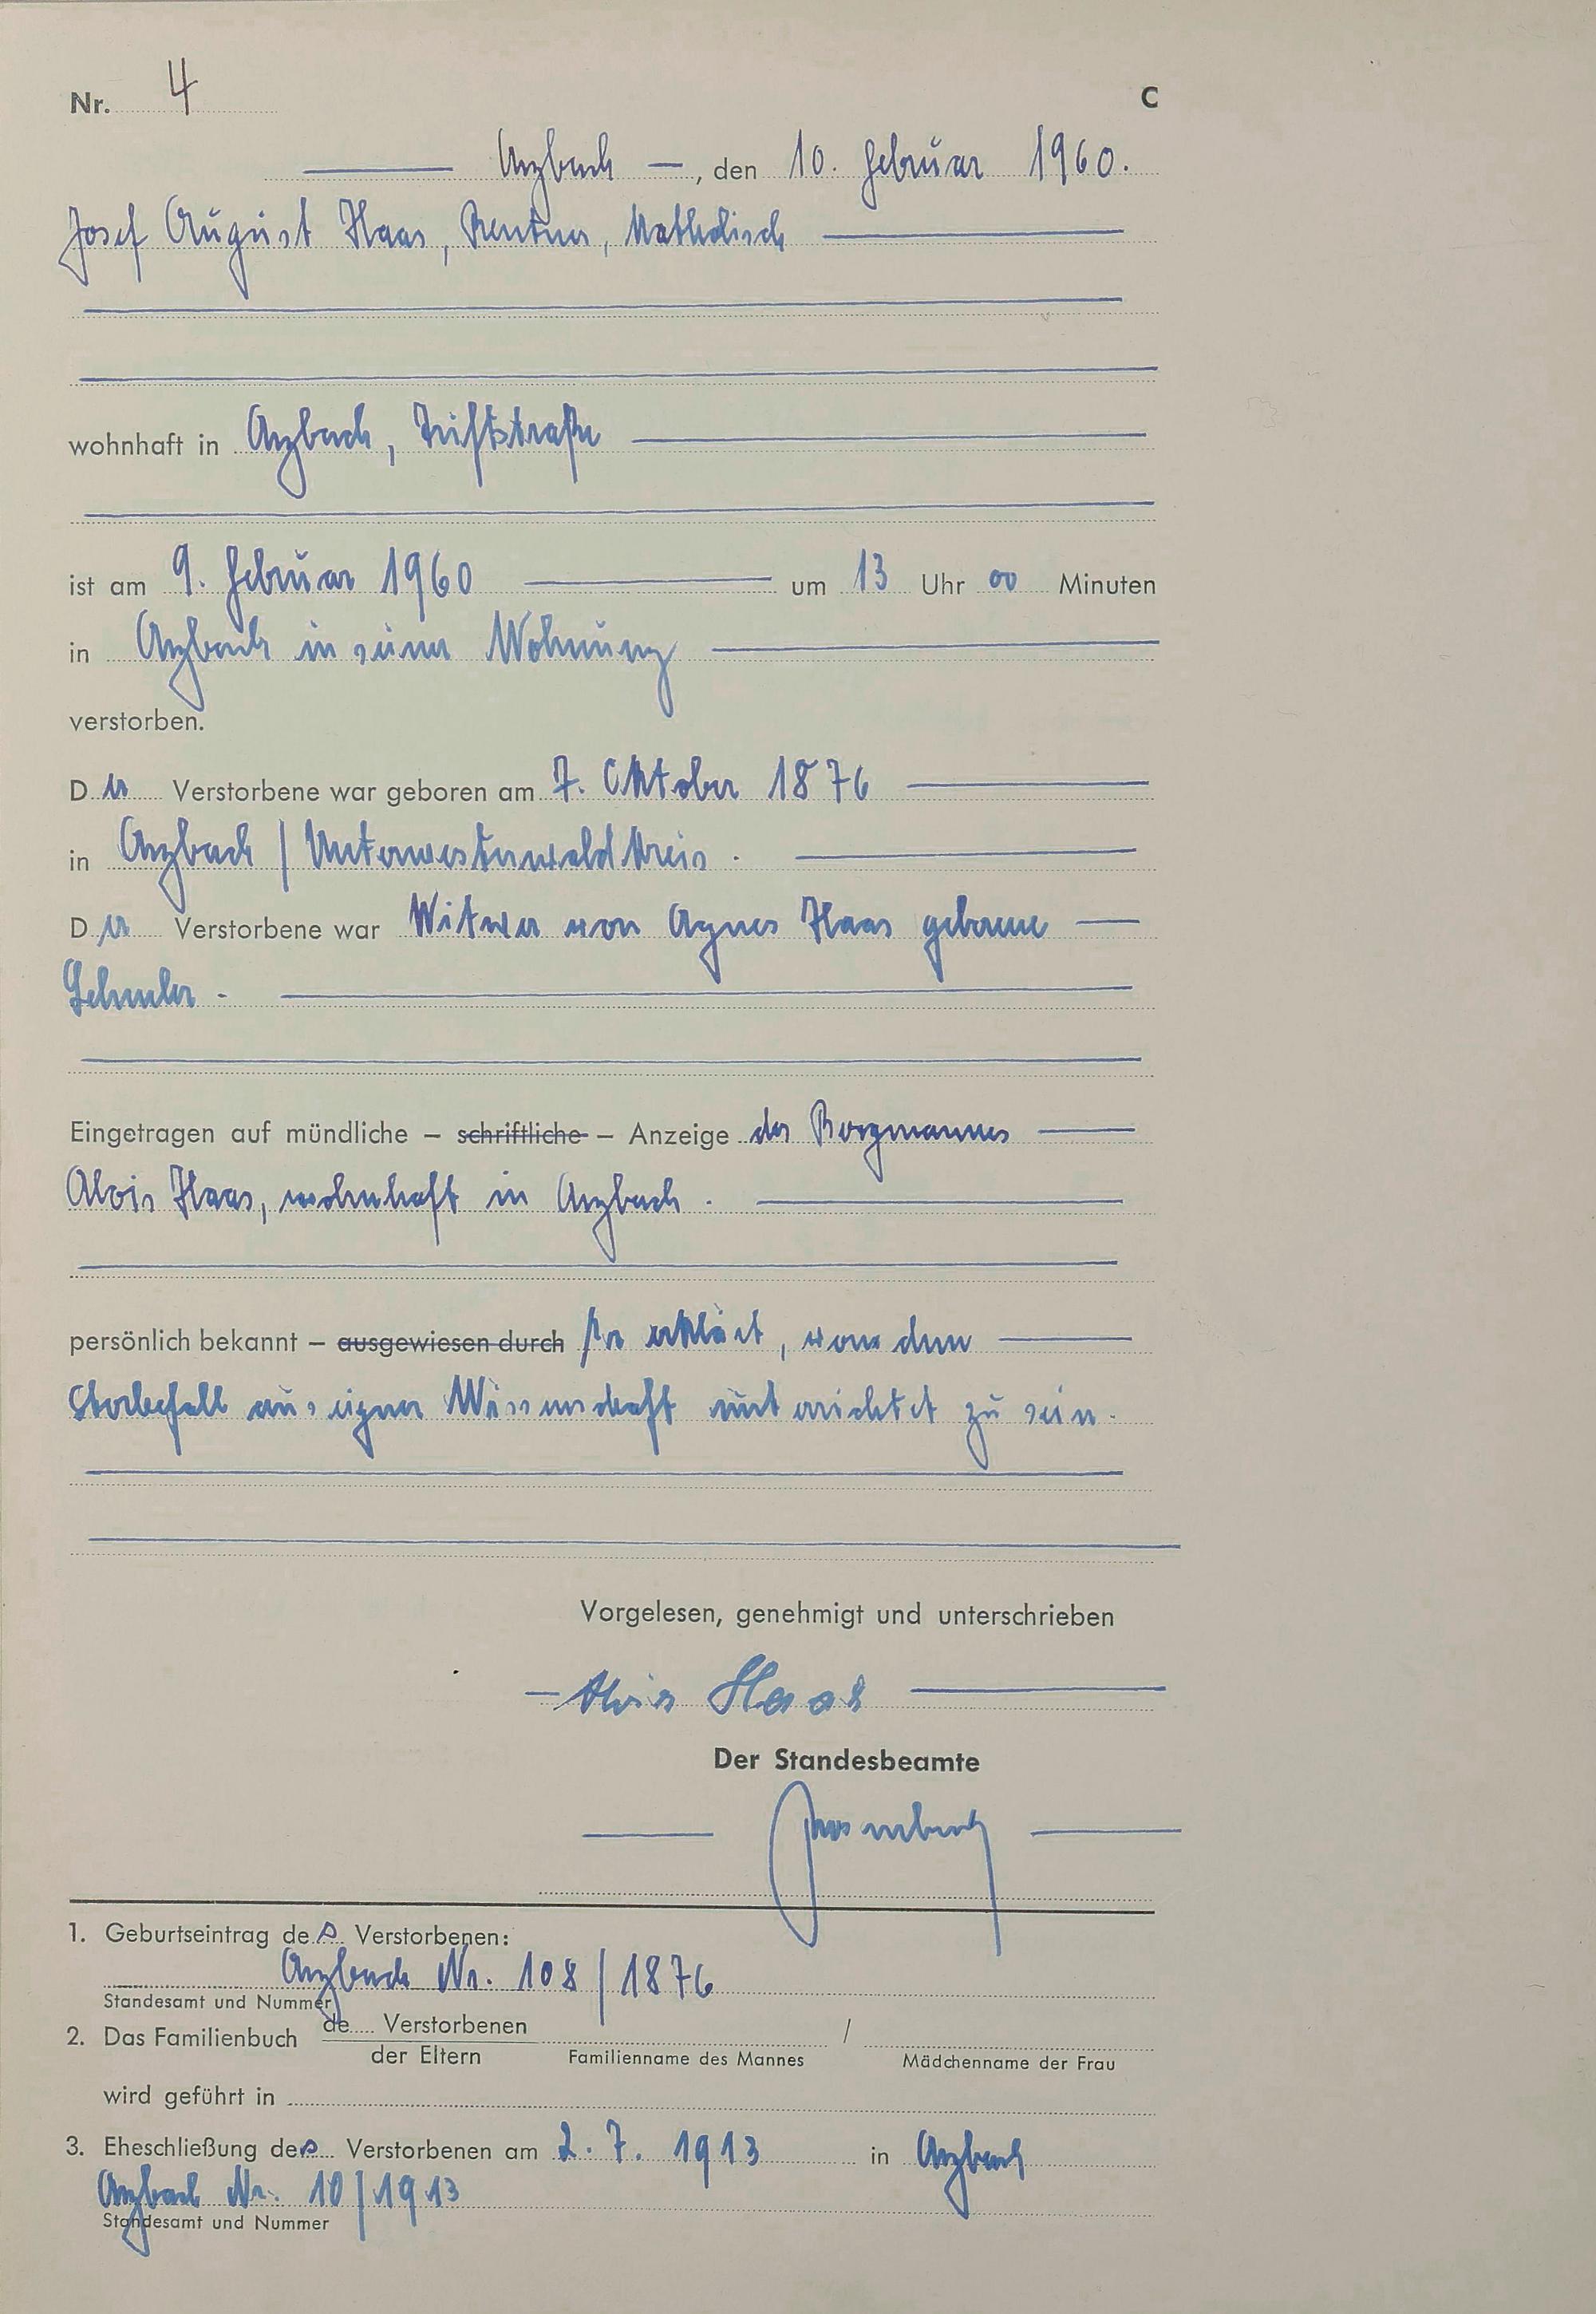 Nr. 4 C
Arzbach –, den 10. Februar 1960.
Josef August Haas, Rentner, katholisch
wohnhaft in Arzbach, Triftstraße
ist am 9. Februar 1960 um 13 Uhr 00 Minuten
in Arzbach in seiner Wohnung
verstorben.
Der Verstorbene war geboren am 7. Oktober 1876
in Arzbach / Unterwesterwaldkreis.
Der Verstorbene war Witwer von Agnes Haas geborene
Eingetragen auf mündliche – schriftliche – Anzeige des Bergmannes
Alois Haas, wohnhaft in Arzbach.
persönlich bekannt – ausgewiesen durch / er erklärt, von dem
Sterbefall aus eigner Wissenschaft unterrichtet zu sein.
Vorgelesen, genehmigt und unterschrieben
– Alois Haas
Der Standesbeamte
1. Geburtseintrag des Verstorbenen:
Arzbach Nr. 108 / 1876
Standesamt und Nummer
2. Das Familienbuch de.... Verstorbenen /
der Eltern Familienname des Mannes Mädchenname der Frau
wird geführt in
3. Eheschließung des Verstorbenen am 2. 7. 1913 in Arzbach
Arzbach Nr. 10 / 1913
Standesamt und Nummer